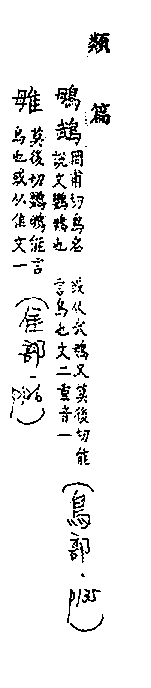 類篇
䳇鵡 罔甫切鳥名
說文鸚䳇也
或从武鵡又莫後切能
言鳥也文二重音一
(鳥部.p135)
莫後切鸚䳇能言
鳥也或从隹文一
(隹部.